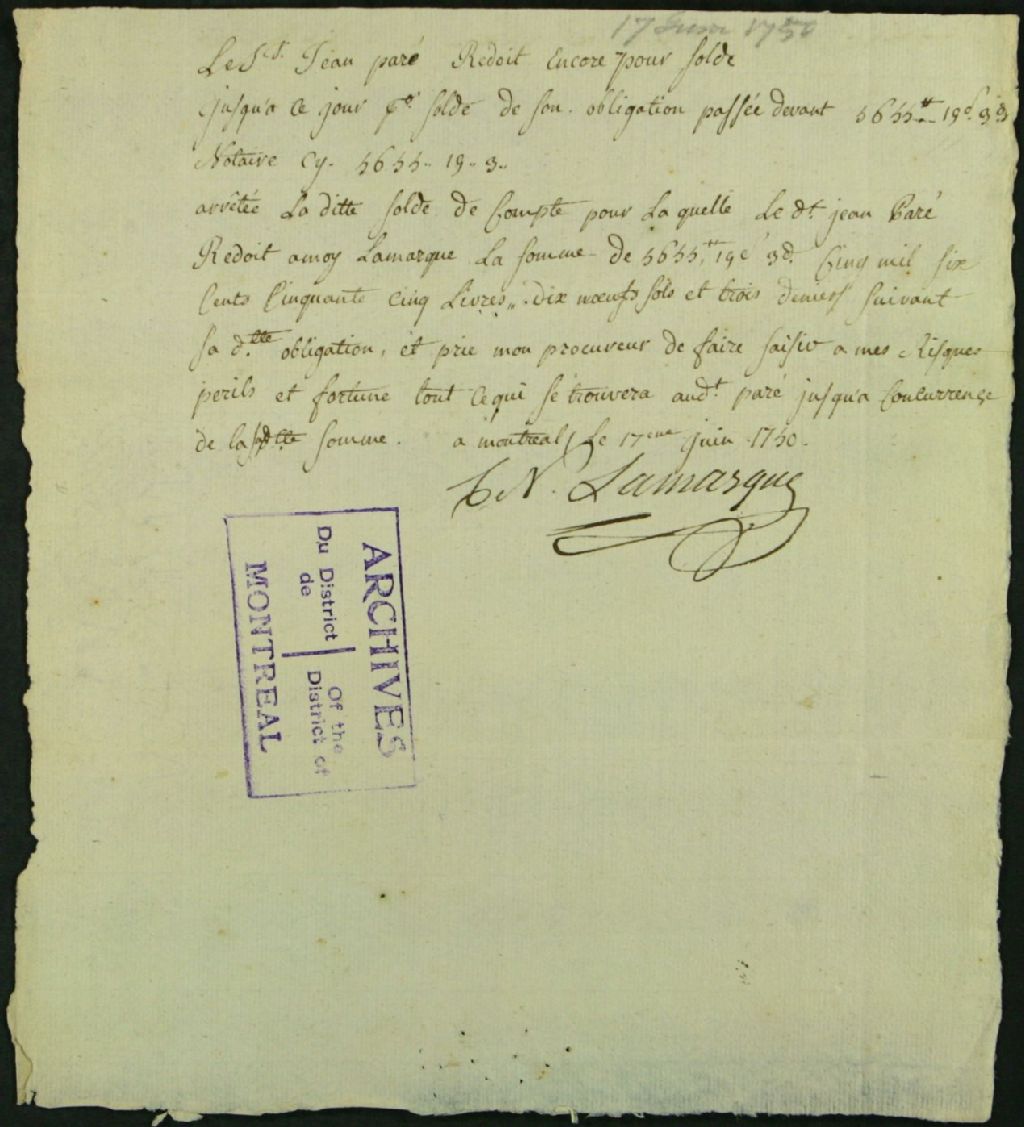 17 Juin 1750
Le Sr. Jean paré Redoit Encore pour solde
jusqua ce jour pr. solde de son obligation passée devant 5655tt 19s 3d
Notaire Cy. 5655 .. 19 .. 3 ..
arrêtée La ditte solde de Compte pour La quelle Le dt. jean Paré
Redoit amoy Lamarque La somme de 5655tt 19s 3d. Cinq mil six
Cents Cinquante Cinq Livres,, dix nœufs sols et trois deniers suivant
sa d.tte obligation, et prie mon procureur de faire saisir a mes Risques
perils et fortune tout Cequi se trouvera audt. paré jusqu'a Concurrence
de la dtte somme. a montreal Le 17eme juin 1750.
N. Lamarque
ARCHIVES
Du District Of the
de District of
MONTREAL